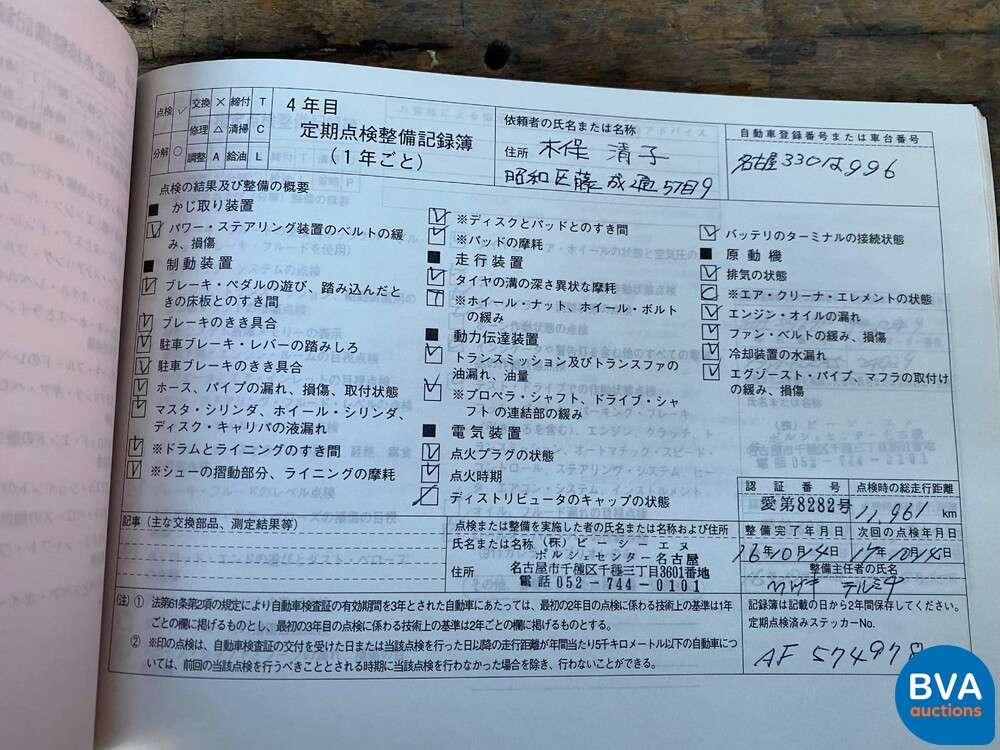 点検 ✓ 交換 × 締付 T
修理 △ 清掃 C
分解 ○ 調整 A 給油 L
4年目
定期点検整備記録簿
(1年ごと)
依頼者の氏名または名称
木俣 清子
住所 昭和区藤成通5丁目9
自動車登録番号または車台番号
名古屋330は996
点検の結果及び整備の概要
■ かじ取り装置
パワー・ステアリング装置のベルトの緩
み、損傷
■ 制動装置
ブレーキ・ペダルの遊び、踏み込んだと
きの床板とのすき間
ブレーキのきき具合
駐車ブレーキ・レバーの踏みしろ
駐車ブレーキのきき具合
ホース、パイプの漏れ、損傷、取付状態
マスタ・シリンダ、ホイール・シリンダ、
ディスク・キャリパの液漏れ
※ドラムとライニングのすき間
※シューの摺動部分、ライニングの摩耗
※ディスクとパッドとのすき間
※パッドの摩耗
■ 走行装置
タイヤの溝の深さ異状な摩耗
※ホイール・ナット、ホイール・ボルト
の緩み
■ 動力伝達装置
トランスミッション及びトランスファの
油漏れ、油量
※プロペラ・シャフト、ドライブ・シャ
フトの連結部の緩み
■ 電気装置
点火プラグの状態
点火時期
ディストリビュータのキャップの状態
バッテリのターミナルの接続状態
■ 原動機
排気の状態
※エア・クリーナ・エレメントの状態
エンジン・オイルの漏れ
ファン・ベルトの緩み、損傷
冷却装置の水漏れ
エグゾースト・パイプ、マフラの取付け
の緩み、損傷
記事（主な交換部品、測定結果等）
点検または整備を実施した者の氏名または名称および住所
氏名または名称 (株)ビー・シー・エヌ
ポルシェセンター名古屋
住所 名古屋市千種区千種三丁目3601番地
電話 052-744-0101
認証番号 点検時の総走行距離
愛第8282号 11,961 km
整備完了年月日 次回の点検年月日
16年10月14日 17年10月14日
整備主任者の氏名
記録簿は記載の日から2年間保存してください。
定期点検済みステッカーNo.
AF 574978
(注) ① 法第61条第2項の規定により自動車検査証の有効期間を3年とされた自動車にあたっては、最初の2年目の点検に係わる技術上の基準は1年
ごとの欄に掲げるものとし、最初の3年目の点検に係わる技術上の基準は2年ごとの欄に掲げるものとする。
② ※印の点検は、自動車検査証の交付を受けた日または当該点検を行った日以降の走行距離が年間当たり5千キロメートル以下の自動車につ
いては、前回の当該点検を行うべきこととされる時期に当該点検を行わなかった場合を除き、行わないことができる。
BVA
auctions